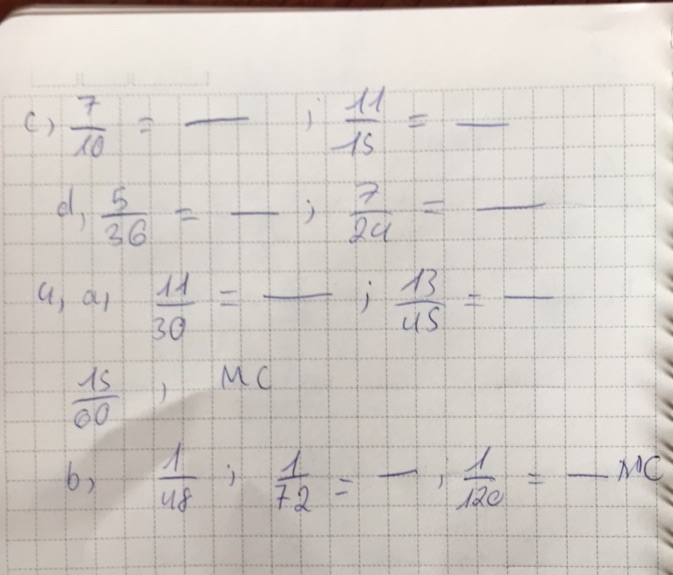 c, 7/10 = — ; 11/15 = —
d, 5/36 = — ; 7/24 = —
4, a, 11/30 = — ; 13/45 = —
15/60 , MC
b, 1/48 ; 1/72 = — ; 1/120 = — MC